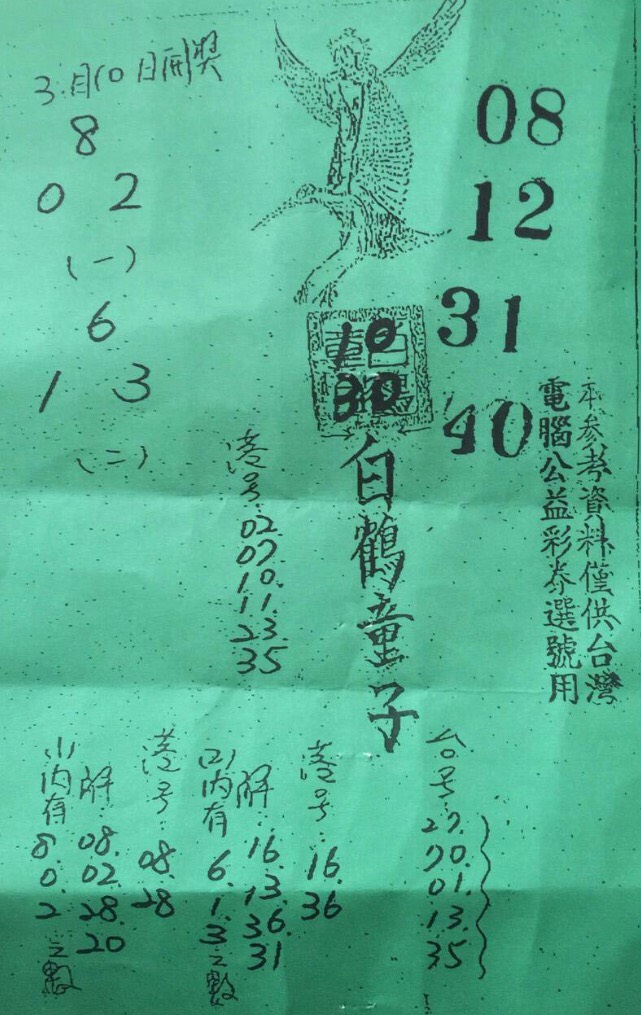 3月10日開獎
8
0 2
(一)
6
1 3
(二)
08
12
31
40
10
30
白鶴童子
本參考資料僅供台灣
電腦公益彩券選號用
港号:
02
07
10.
11.
23.
35
台号:
27.
70.
01.
13.
35
港号:
16.
36
(2)內有
6.
1.
3
之數
解:
16.
13.
36
31
港号:
08.
28
(1)內有
8.
0.
2
之數
解:
08.
02
28
20